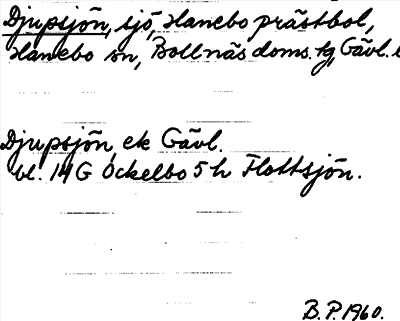 Djupsjön, sjö, Hanebo prästbol,
Hanebo sn, Bollnäs doms. tg, Gävl.
Djupsjön, ek Gävl.
bl. 14G Ockelbo 5h Flottsjön.
B.P. 1960.